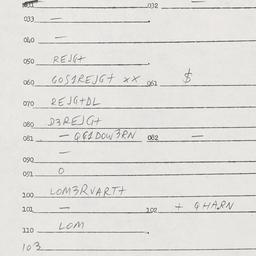 031 032 —
033 —
040 —
050 REJG+
060 GOS1REJG+ xx 061 $
070 REJG+DL
080 D3REJG+
081 — QE1DOW3RN 082 —
090 —
091 O
100 LOM3RVART+
101 — 102 + GHARN
110 LOM
103